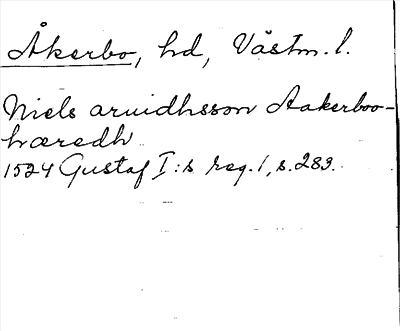 Åkerbo, hd, Västm. l.
Niels aruidhsson Aakerboo-
hæredh
1524 Gustaf I:s reg. 1, s. 283.